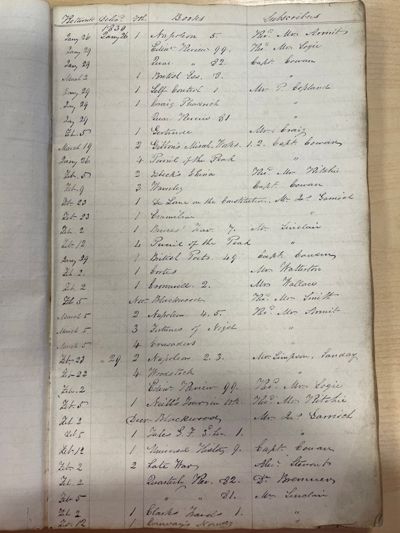 Returned Deliv.d Vols Books Subscribers
1830
Jany 26 Jany 26 1 Napoleon 5. Thos. Mrs. Armit
Jany 29 Edin.r Review 99. Thos. Mrs. Logie
Jany 29 Quar " 82 Capt. Cowan
March 2 1 British Ess. 3. "
Jany 29 1 Self Control 1 Mr. P. Copland
Jany 29 1 Craig "
Jany 29 Quar Review 81 "
Feb. 5 1 Gertrude Mr. Craig
March 19 2 Gibbon's Miscel. Works 1. 2. Capt. Cowan
Jany 26 4 Peveril of the Peak "
Feb. 5 2 China Thos. Mr. Ritchie
Feb. 9 3 Waverley Capt. Cowan
Oct. 23 1 De Lome on the Constitution Mr. Jas.
Feb. 23 1 "
Feb. 2 1 Bruces' Trav. 7. Mr. Sinclair
Feb. 12 4 Peveril of the Peak "
Jany 29 1 British Poets 49 Capt. Cowan
Feb. 2. 1 Cortes Mr. Watterton
Feb. 2 1 Cromwell 2. Mrs Wallace
Feb 5 Nov. Blackwood Thos. Mr. Smith
March 5 2 Napoleon 4. 5. Thos. Mr. Armit
March 5 3 "
March 5 4 Crusaders "
Feb. 23 " 29 2 Napoleon 2. 3. Mr Simpson, Sanday
Feb. 23 4 Woodstock "
Feb. 2 Edin.r Review 99. Thos. Mr. Logie
Feb. 5 1 Neill's Tour in Thos. Mr. Ritchie
Feb. 2 Decr Blackwood Mr. Jas.
Feb. 5 1 Tales G. F. 1. "
Feb. 12 1 Universal History 9. Capt. Cowan
Feb. 2 2 Late War Alexr. Stewart
Feb. 2 Quarterly Rev. 82. Dr. Bremner
Feb. 5 " " 81. Mr. Sinclair
Feb. 2 1 Clarkes Travels 1. "
Feb. 12 1 Norway "